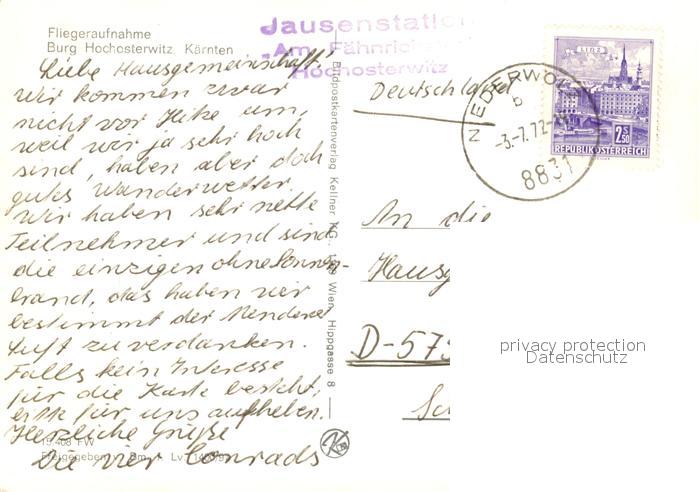 Fliegeraufnahme
Burg Hochosterwitz, Kärnten
Jausenstation
"Am Fähnrich
Hochosterwitz
Liebe Hausgemeinschaft!
Wir kommen zwar
nicht vor Hitze um,
weil wir ja sehr hoch
sind, haben aber doch
gutes Wanderwetter.
Wir haben sehr nette
Teilnehmer und sind
die einzigen ohne Sonnen-
brand, das haben wir
bestimmt der Mendener
Luft zu verdanken.
Falls kein Interesse
für die Karte besteht,
bitte für uns aufheben.
Herzliche Grüße
Die vier Conrads
15.408 FW
Freigegeben v. Bm. f. Lv.
Bildpostkartenverlag Kellner KG, Wien, Hippgasse 8
Deutschland
NIEDERWÖLZ
b
-3.-7.72
8831
LINZ
2S50
REPUBLIK ÖSTERREICH
An die
Hausg
D-575
Sc
privacy protection
Datenschutz